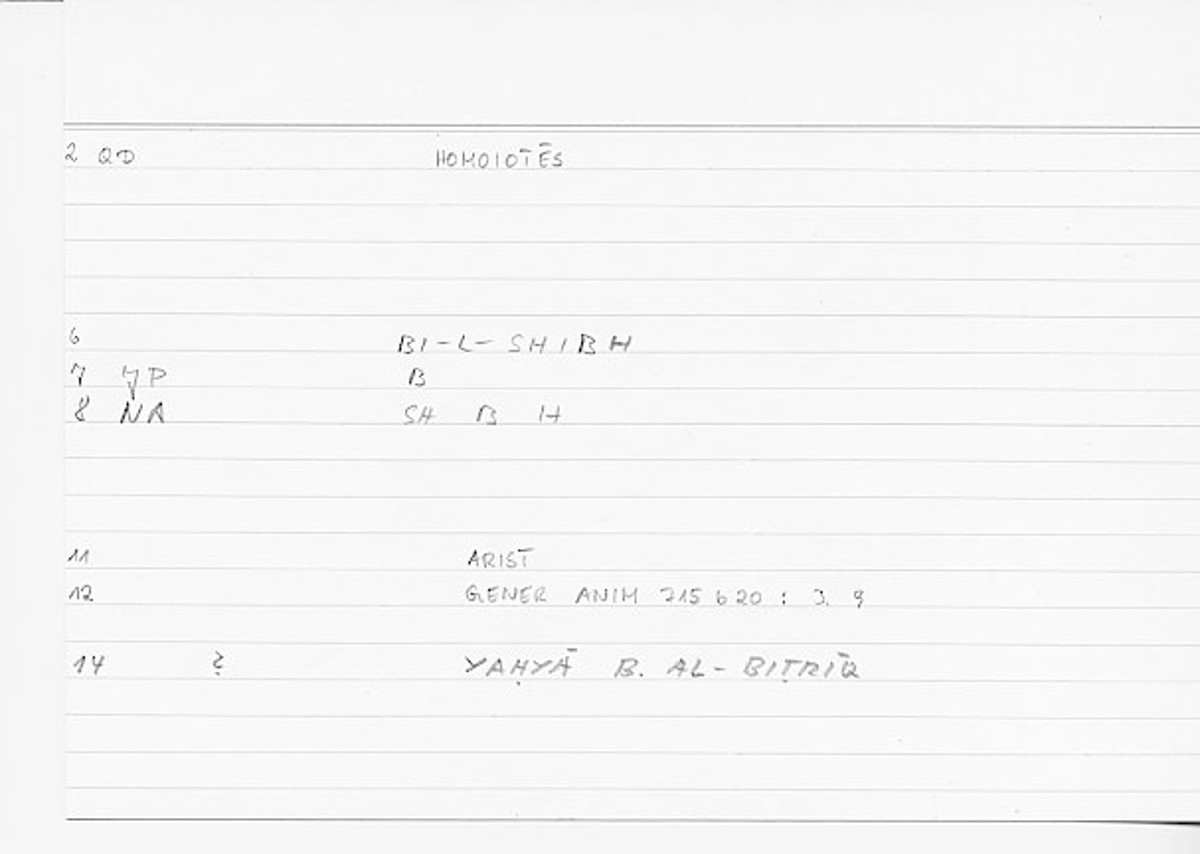 2 QD HOMOIOTĒS
6 BI-L-SHIBH
7 YP B
8 NA SH B H
11 ARIST
12 GENER ANIM 715 b 20 : 3. 9
14 ? YAḤYĀ B. AL-BIṬRĪQ